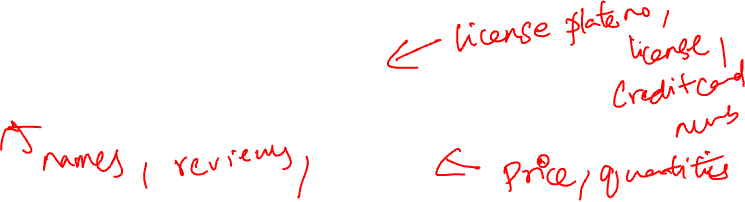 license plate no,
license,
Credit card
nums
names, reviews,
Price, quantities